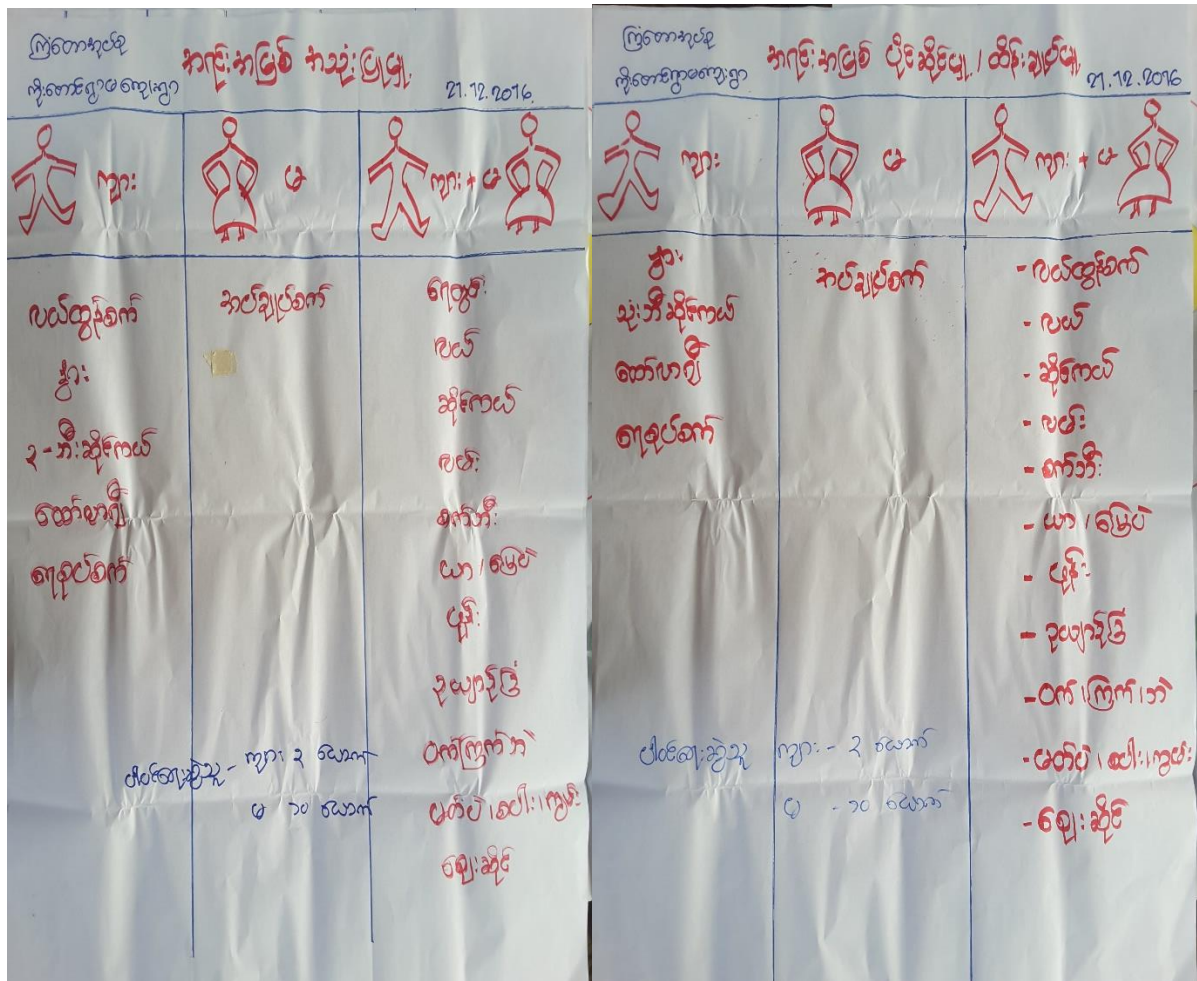 ကြံတောအုပ်စု
ကိုးတောင်ရွာမကျေးရွာ
အရင်းအမြစ် အသုံးပြုမှု
21.12.2016
ကျား
မ
ကျား + မ
လယ်ထွန်စက်
နွား
၃-ဘီးဆိုင်ကယ်
ထော်လာဂျီ
ရေစုပ်စက်
အပ်ချုပ်စက်
ရေတွင်း
လယ်
ဆိုင်ကယ်
လမ်း
စက်ဘီး
ယာ ၊ မြေပဲ
ပျဉ်း
ဥယျာဉ်ခြံ
ဝက်ကြက်ဘဲ
မတ်ပဲ ၊ စပါး ၊ ကျွမ်း
ဈေးဆိုင်
ပါဝင်ဆွေးနွေးသူ - ကျား ၃ ယောက်
မ ၁၀ ယောက်
ကြံတောအုပ်စု
ကိုးတောင်ရွာမကျေးရွာ
အရင်းအမြစ် ပိုင်ဆိုင်မှု ၊ ထိန်းချုပ်မှု
21.12.2016
ကျား
မ
ကျား + မ
နွား
သုံးဘီးဆိုင်ကယ်
ထော်လာဂျီ
ရေစုပ်စက်
အပ်ချုပ်စက်
- လယ်ထွန်စက်
- လယ်
- ဆိုင်ကယ်
- လမ်း
- စက်ဘီး
- ယာ ၊ မြေပဲ
- ပျဉ်း
- ဥယျာဉ်ခြံ
- ဝက် ၊ ကြက် ၊ ဘဲ
- မတ်ပဲ ၊ စပါး ၊ ကျွမ်း
- ဈေးဆိုင်
ပါဝင်ဆွေးနွေးသူ ကျား - ၃ ယောက်
မ - ၁၀ ယောက်